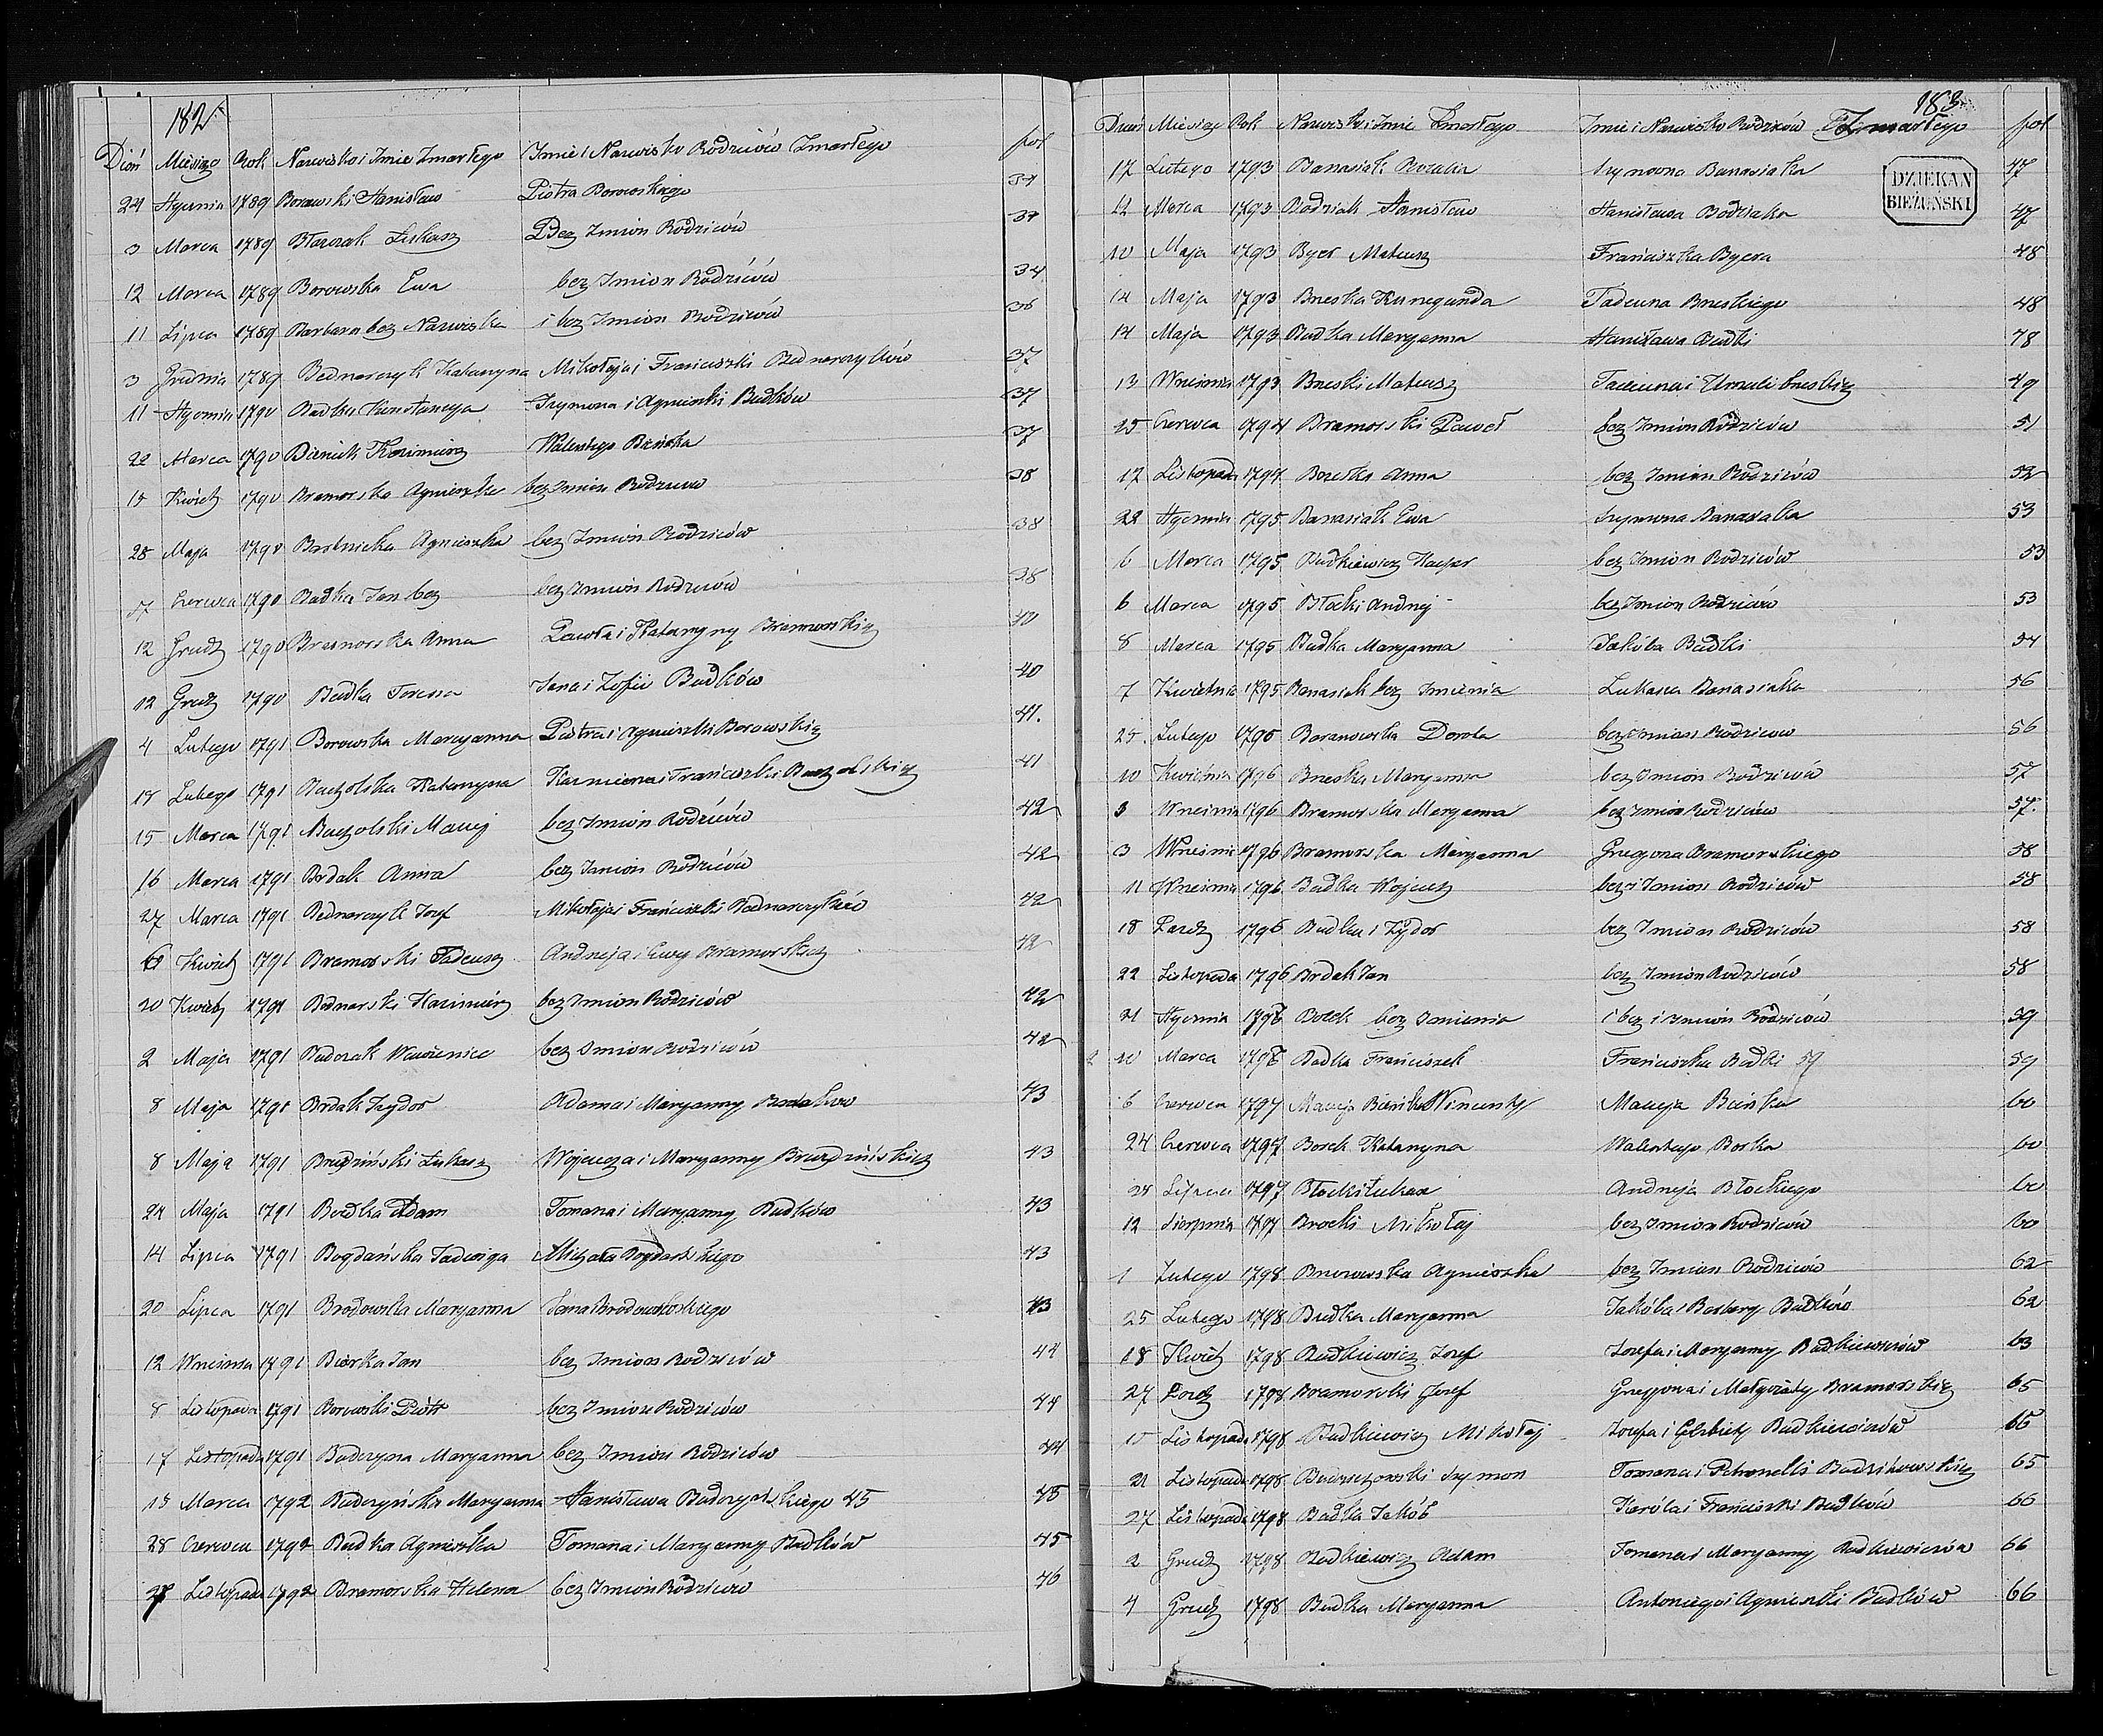 182
Dień Miesiąc Rok Nazwiska i Imie Zmarłego Imie i Nazwisko Rodziców Zmarłego pol
24 Stycznia 1789 Borowski Stanisław Piotra Borowskiego 34
3 Marca 1789 Błaszak Łukasz Bez Imion Rodziców 34
12 Marca 1789 Borowska Ewa bez Imion Rodziców 34
11 Lipca 1789 Barbara bez Nazwiska i bez Imion Rodziców 36
3 Grudnia 1789 Bednarczyk Katarzyna Mikołaja i Franciszki Bednarczyków 37
11 Stycznia 1790 Budka Konstancya Szymona i Agnieszki Budków 37
22 Marca 1790 Bieniek Kazimierz Walentego 37
15 Kwiet 1790 Bramorska Agnieszka bez Imion Rodziców 38
28 Maja 1790 Agnieszka bez Imion Rodziców 38
Czerwca 1790 Budka Jan bez bez Imion Rodziców 38
12 Grudz 1790 Bramorska Anna Pawła i Katarzyny Bramorskich 40
12 Grudz 1790 Budka Teressa Jana i Zofii Budków 40
4 Lutego 1791 Borowska Maryanna Piotra i Agnieszki Borowskich 41.
18 Lutego 1791 Baczolska Katarzyna Kazmierza i Franciszki Baczolskich 41
15 Marca 1791 Baczolski Maciej bez Imion Rodziców 42
16 Marca 1791 Brdak Anna bez Imion Rodziców 42
27 Marca 1791 Bednarczyk Jozef Mikołaja i Franciszki Bednarczyków 42
6 Kwiet 1791 Bramorski Tadeusz Andrzeja i Ewy Bramorskich 42
20 Kwiet 1791 Bednarski Kazimierz bez Imion Rodziców 42
2 Maja 1791 Badczak Wawrzeniec bez Imion Rodziców 42
8 Maja 1791 Brdak Izydor Adama i Maryanny Brdaków 43
8 Maja 1791 Brudziński Łukasz Wojciecha i Maryanny Brudzińskich 43
24 Maja 1791 Budka Adam Tomasza i Maryanny Budków 43
14 Lipca 1791 Bogdańska Jadwiga Michała Bogdańskiego 43
20 Lipca 1791 Brodowska Maryanna Jana Brodowskiego 43
12 Wrzesnia 1791 Bieńka Jan bez Imion Rodziców 44
8 Listopada 1791 Borowski Piotr bez Imion Rodziców 44
17 Listopada 1791 Budczyna Maryanna bez Imion Rodziców 44
15 Marca 1792 Budczyńska Maryanna Stanisława Budczyńskiego 45 45
28 Czerwca 1792 Budka Agnieszka Tomasza i Maryanny Budków 45
27 Listopada 1792 Bramorska Helena bez Imion Rodziców 46
183
Dzień Miesiąc Rok Nazwisko i Imie Zmarłego Imie i Nazwisko Rodziców Zmarłego pol
DZIEKAN
BIEŻUŃSKI
17 Lutego 1793 Banasiak Rozalia Szymona Banasiaka 47
12 Marca 1793 Bodziak Stanisław Stanisława Bodziaka 47
10 Maja 1793 Byer Mateusz Franciszka Byera 48
14 Maja 1793 Brzeska Kunegunda Tadeusza Brzeskiego 48
14 Maja 1793 Budka Maryanna Stanisława Budki 78
13 Wrzesnia 1793 Brzeski Mateusz Tadeusza i Urszuli brzeskich 49
25 Czerwca 1794 Bramorski Paweł bez Imion Rodziców 51
17 Listopada 1794 Anna bez Imion Rodziców 52
22 Stycznia 1795 Banasiak Ewa Szymona Banasiaka 53
6 Marca 1795 Budkiewicz Kacper bez Imion Rodziców 53
6 Marca 1795 Błocki Andrzej bez Imion Rodziców 53
8 Marca 1795 Budka Maryanna Jakóba Budki 54
7 Kwietnia 1795 Banasiak bez Imienia Łukasza Banasiaka 56
25 Lutego 1796 Baranowska Dorota bez Imion Rodziców 56
10 Kwietnia 1796 Brzeska Maryanna bez Imion Rodziców 57
3 Wrzesnia 1796 Bramorska Maryanna bez Imion Rodziców 57.
3 Wrzesnia 1796 Bramorska Maryanna Grzegorza Bramorskiego 58
11 Wrzesnia 1796 Budka Wojciech bez i Imion Rodziców 58
18 Pazdz 1796 Budka Izydor bez Imion Rodziców 58
22 Listopada 1796 Brdak Jan bez Imion Rodziców 58
21 Stycznia 1797 Borek bez Imienia i bez i Imion Rodziców 59
10 Marca 1797 Budka Franciszek Franciszka Budki 59 59
6 Czerwca 1797 Macieja Bieńka Wincenty Macieja Bieńka 60
24 Czerwca 1797 Borek Katarzyna Walentego Borka 60
28 Lipca 1797 Błocki Łukasz Andrzeja Błockiego 60
12 Sierpnia 1797 Brocki Mikołaj bez Imion Rodziców 60
1 Lutego 1798 Brzozowska Agnieszka bez Imion Rodziców 62
25 Lutego 1798 Budka Maryanna Jakóba i Barbary Budków 62
18 Kwiet 1798 Budkiewicz Jozef Jozefa i Maryanny Budkiewiczów 63
27 Pazdz 1798 Bramorski Jozef Grzegorza i Małgorzaty Bramorskich 65
15 Listopada 1798 Budkiewicz Mikołaj Jozefa i Elzbiety Budkiewiczów 65
21 Listopada 1798 Szymon Tomasza i Petronelli 65
27 Listopada 1798 Budka Jakób Karóla i Franciszki Budków 66
2 Grudz 1798 Budkiewicz Adam Tomasza i Maryanny Budkiewiczów 66
4 Grudz 1798 Budka Maryanna Antoniego i Agnieszki Budków 66